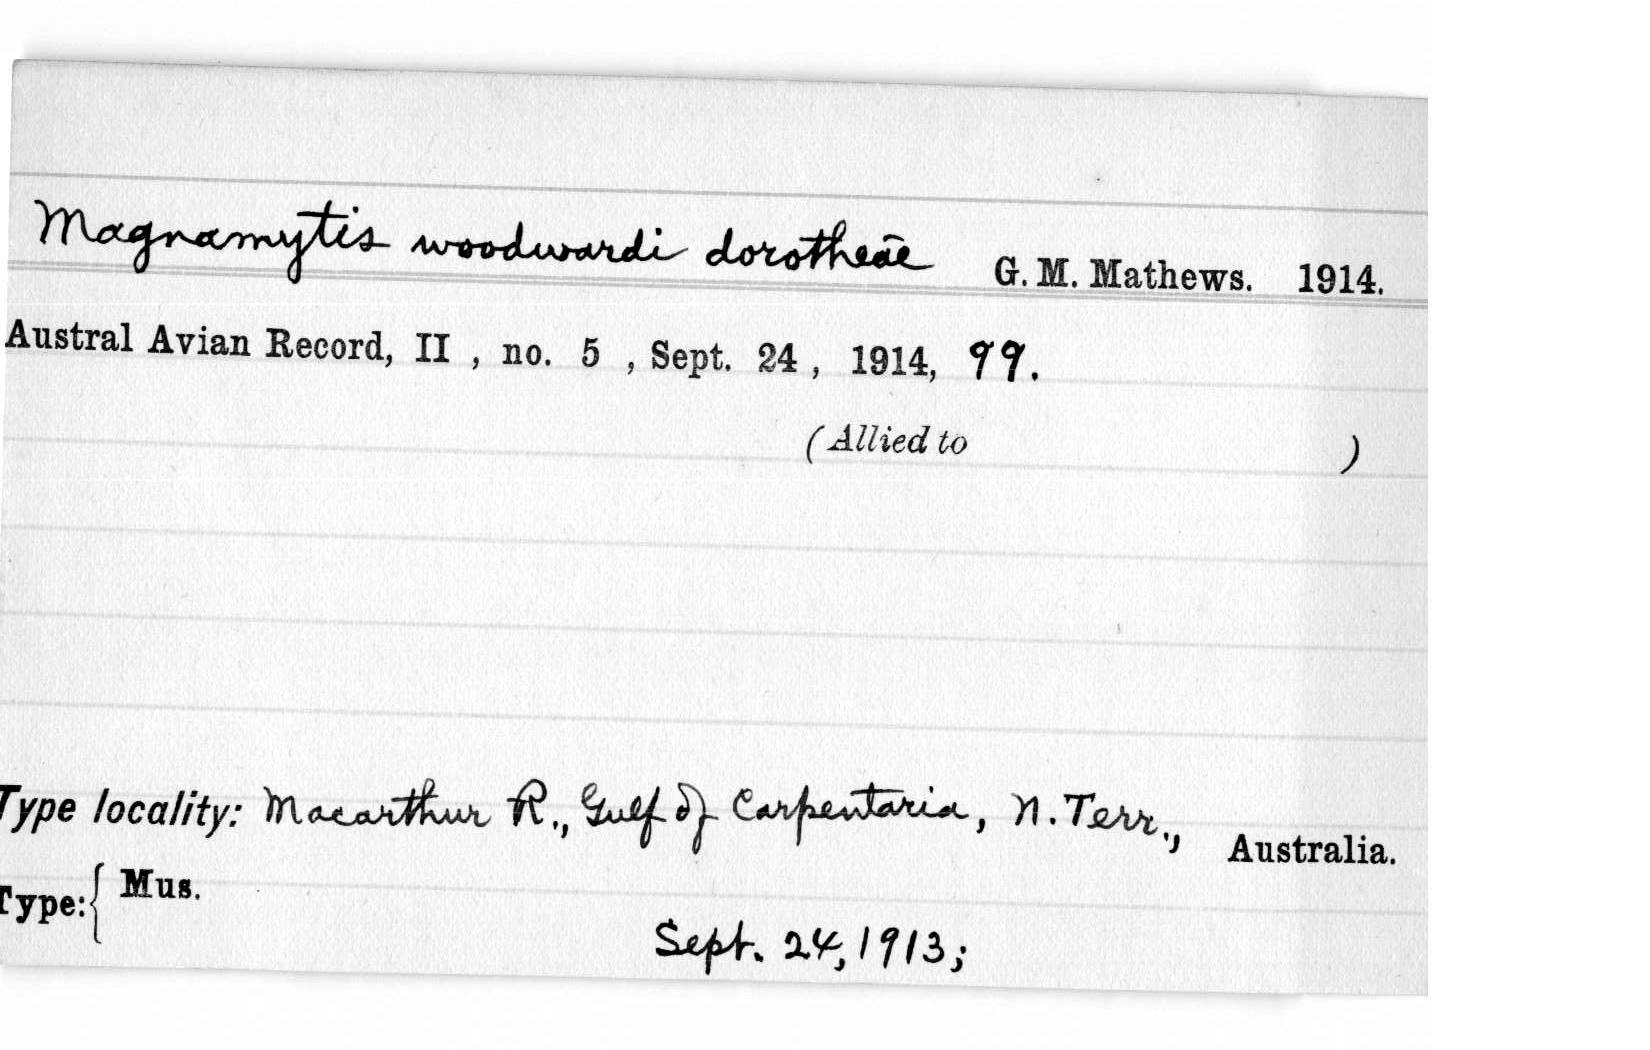 Magnamytis woodwardi dorotheae G. M. Mathews. 1914.
Austral Avian Record, II , no. 5 , Sept. 24 , 1914, 99.
(Allied to )
Type locality: Macarthur R., Gulf of Carpentaria, N. Terr., Australia.
Type: { Mus.
Sept. 24, 1913;